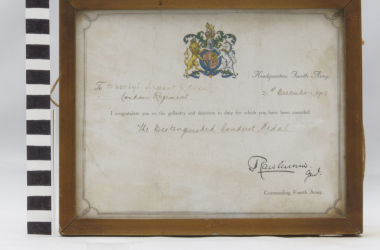 Headquarters, Fourth Army
December
To Sergeant
London Regiment
I congratulate you on the gallantry and devotion to duty for which you have been awarded
The Distinguished Conduct Medal
Rawlinson
Genl.
Commanding Fourth Army